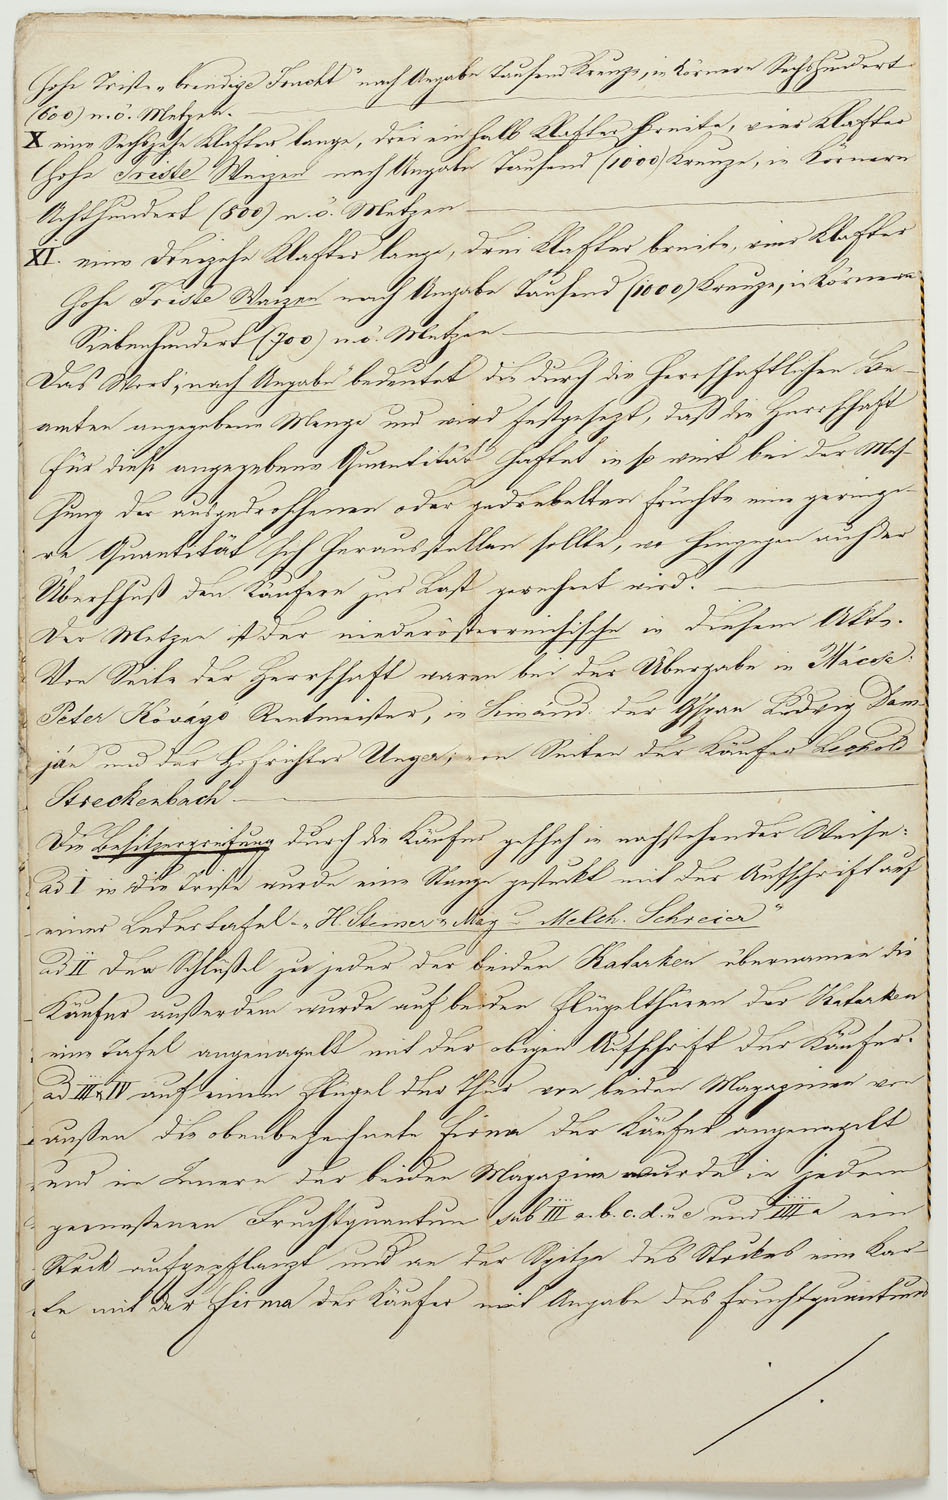 hohe Triste „brandige Frucht“ nach Angabe Tausend Kreuze, in Körnern Sechshundert
(600) n. ö. Metzen.
X eine Sechszehn Klafter lange, drei ein halb Klafter breite, vier Klafter
hohe Triste Waizen nach Angabe Tausend (1000) Kreuze, in Körnern
Achthundert (800) n. ö. Metzen
XI. eine Dreizehn Klafter lange, drei Klafter breite, vier Klafter
hohe Triste Waizen nach Angabe Tausend (1000) Kreuze, in Körnern
Siebenhundert (700) n. ö. Metzen
Das Wort „nach Angabe“ bedeutet die durch die herrschaftlichen Be-
amten angegebene Menge und wird festgesezt, daß die Herrschaft
für diese angegebene Quantität haftet in so weit bei der Mes-
sung der ausgedroschenen oder gedrebelten Früchte eine geringe-
re Quantität sich herausstellen sollte, wo hingegen auch der
Überschuß den Käufern zur Last gerechnet wird.
Der Metzen ist der niederösterreichische in diesem Akte.
Von Seite der Herrschaft waren bei der Übergabe in Mácsa:
Peter Kövágó Rentmeister, in Simánd: der Gespan Ludwig Dam-
ján und der Hofrichter Unger; von Seiten der Käufer Leopold
Streckenbach.
Die Besitzergreifung durch die Käufer geschah in nachstehender Weise:
ad I in die Triste wurde eine Stange gesteckt mit der Aufschrift auf
einer Ledertafel „H. Steiner & Mayr Melch. Schreier“
ad II Den Schlüßel zu jeder der beiden Katarken übernamen die
Käufer außerdem wurde auf beiden Flügelthüren der Katarken
eine Tafel angenagelt mit der obigen Aufschrift der Käufer.
ad III & IV auf einem Flügel der Thür von beiden Magazinen von
außen die obenbezeichnete Firma der Käufer angenagelt
und im Innern der beiden Magazine wurde in jedem
gemessenen Fruchtquantum sub III a. b. c. d. u e und IIII a ein
Stock aufgepflanzt und an der Spitze des Stockes eine Kar-
te mit der Firma der Käufer mit Angabe des Fruchtquantums
./.